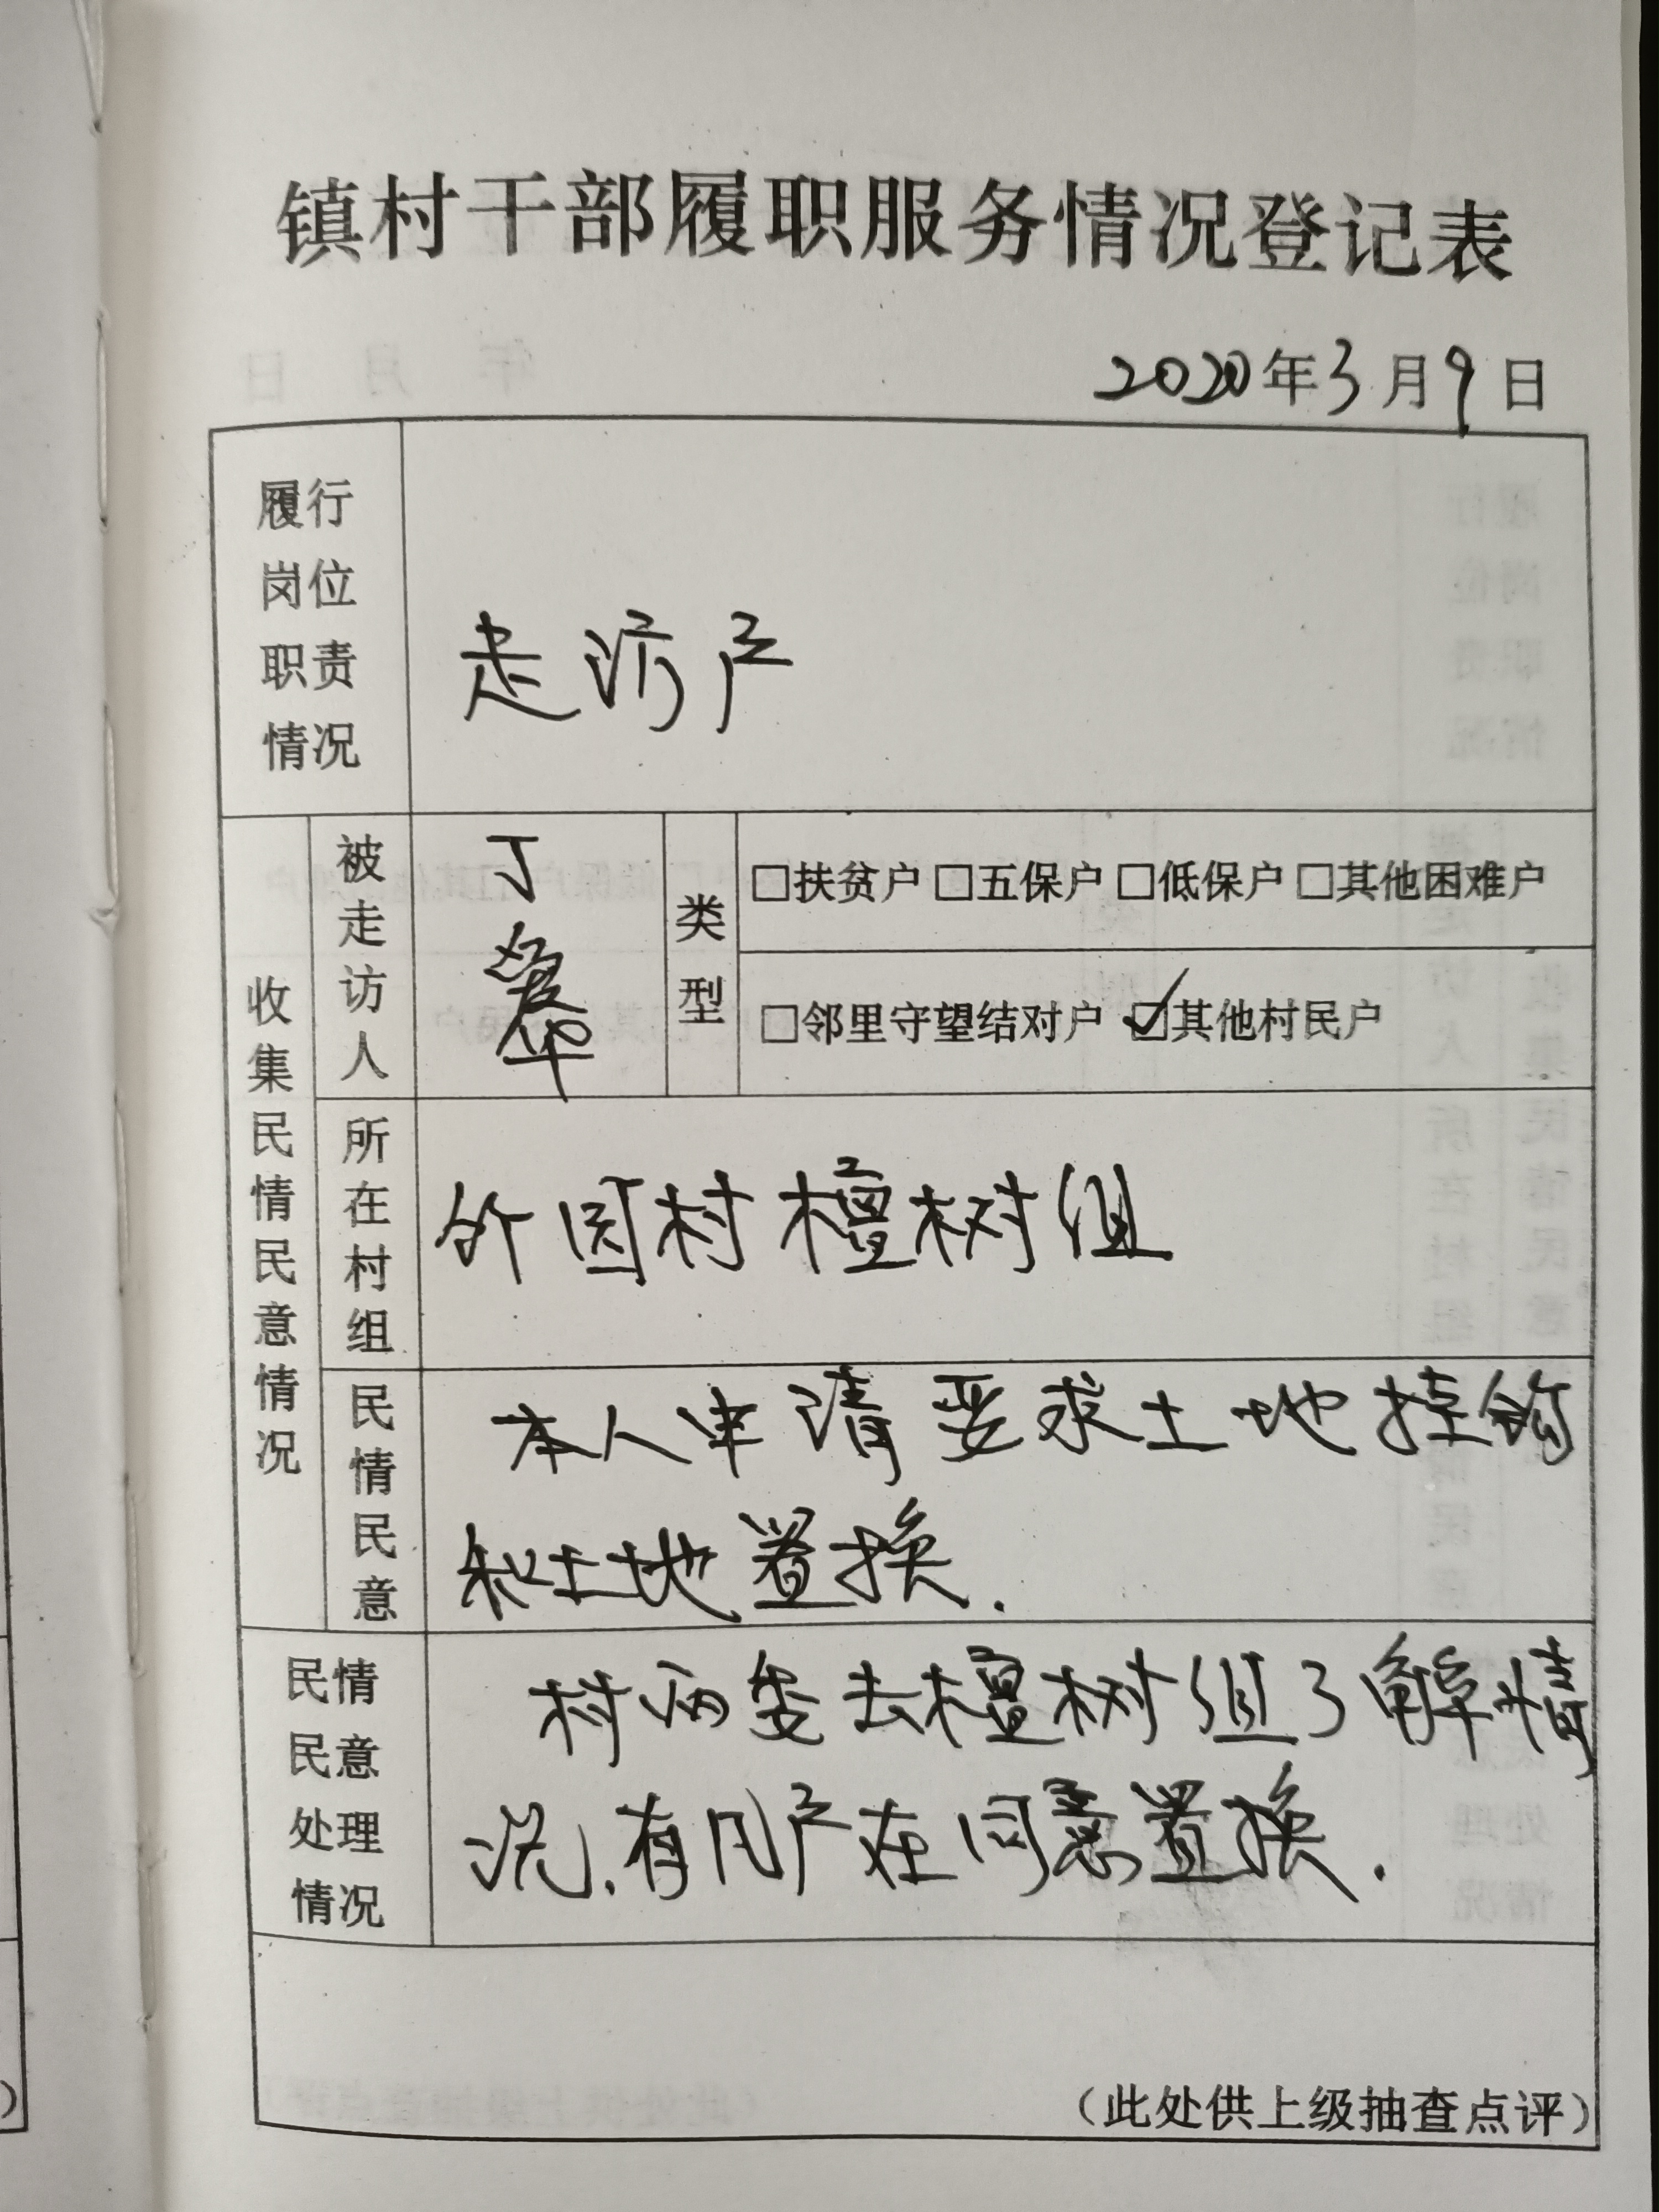 镇村干部履职服务情况登记表
2020年3月9日
履行岗位职责情况
走访户
收集民情民意情况
被走访人
丁爱华
类型
□扶贫户 □五保户 □低保户 □其他困难户
□邻里守望结对户 ☑其他村民户
所在村组
外园村檀树组
民情民意
本人申请要求土地挂钩
和土地置换.
民情民意处理情况
村两委去檀树组了解情
况.有几户在同意置换.
(此处供上级抽查点评)